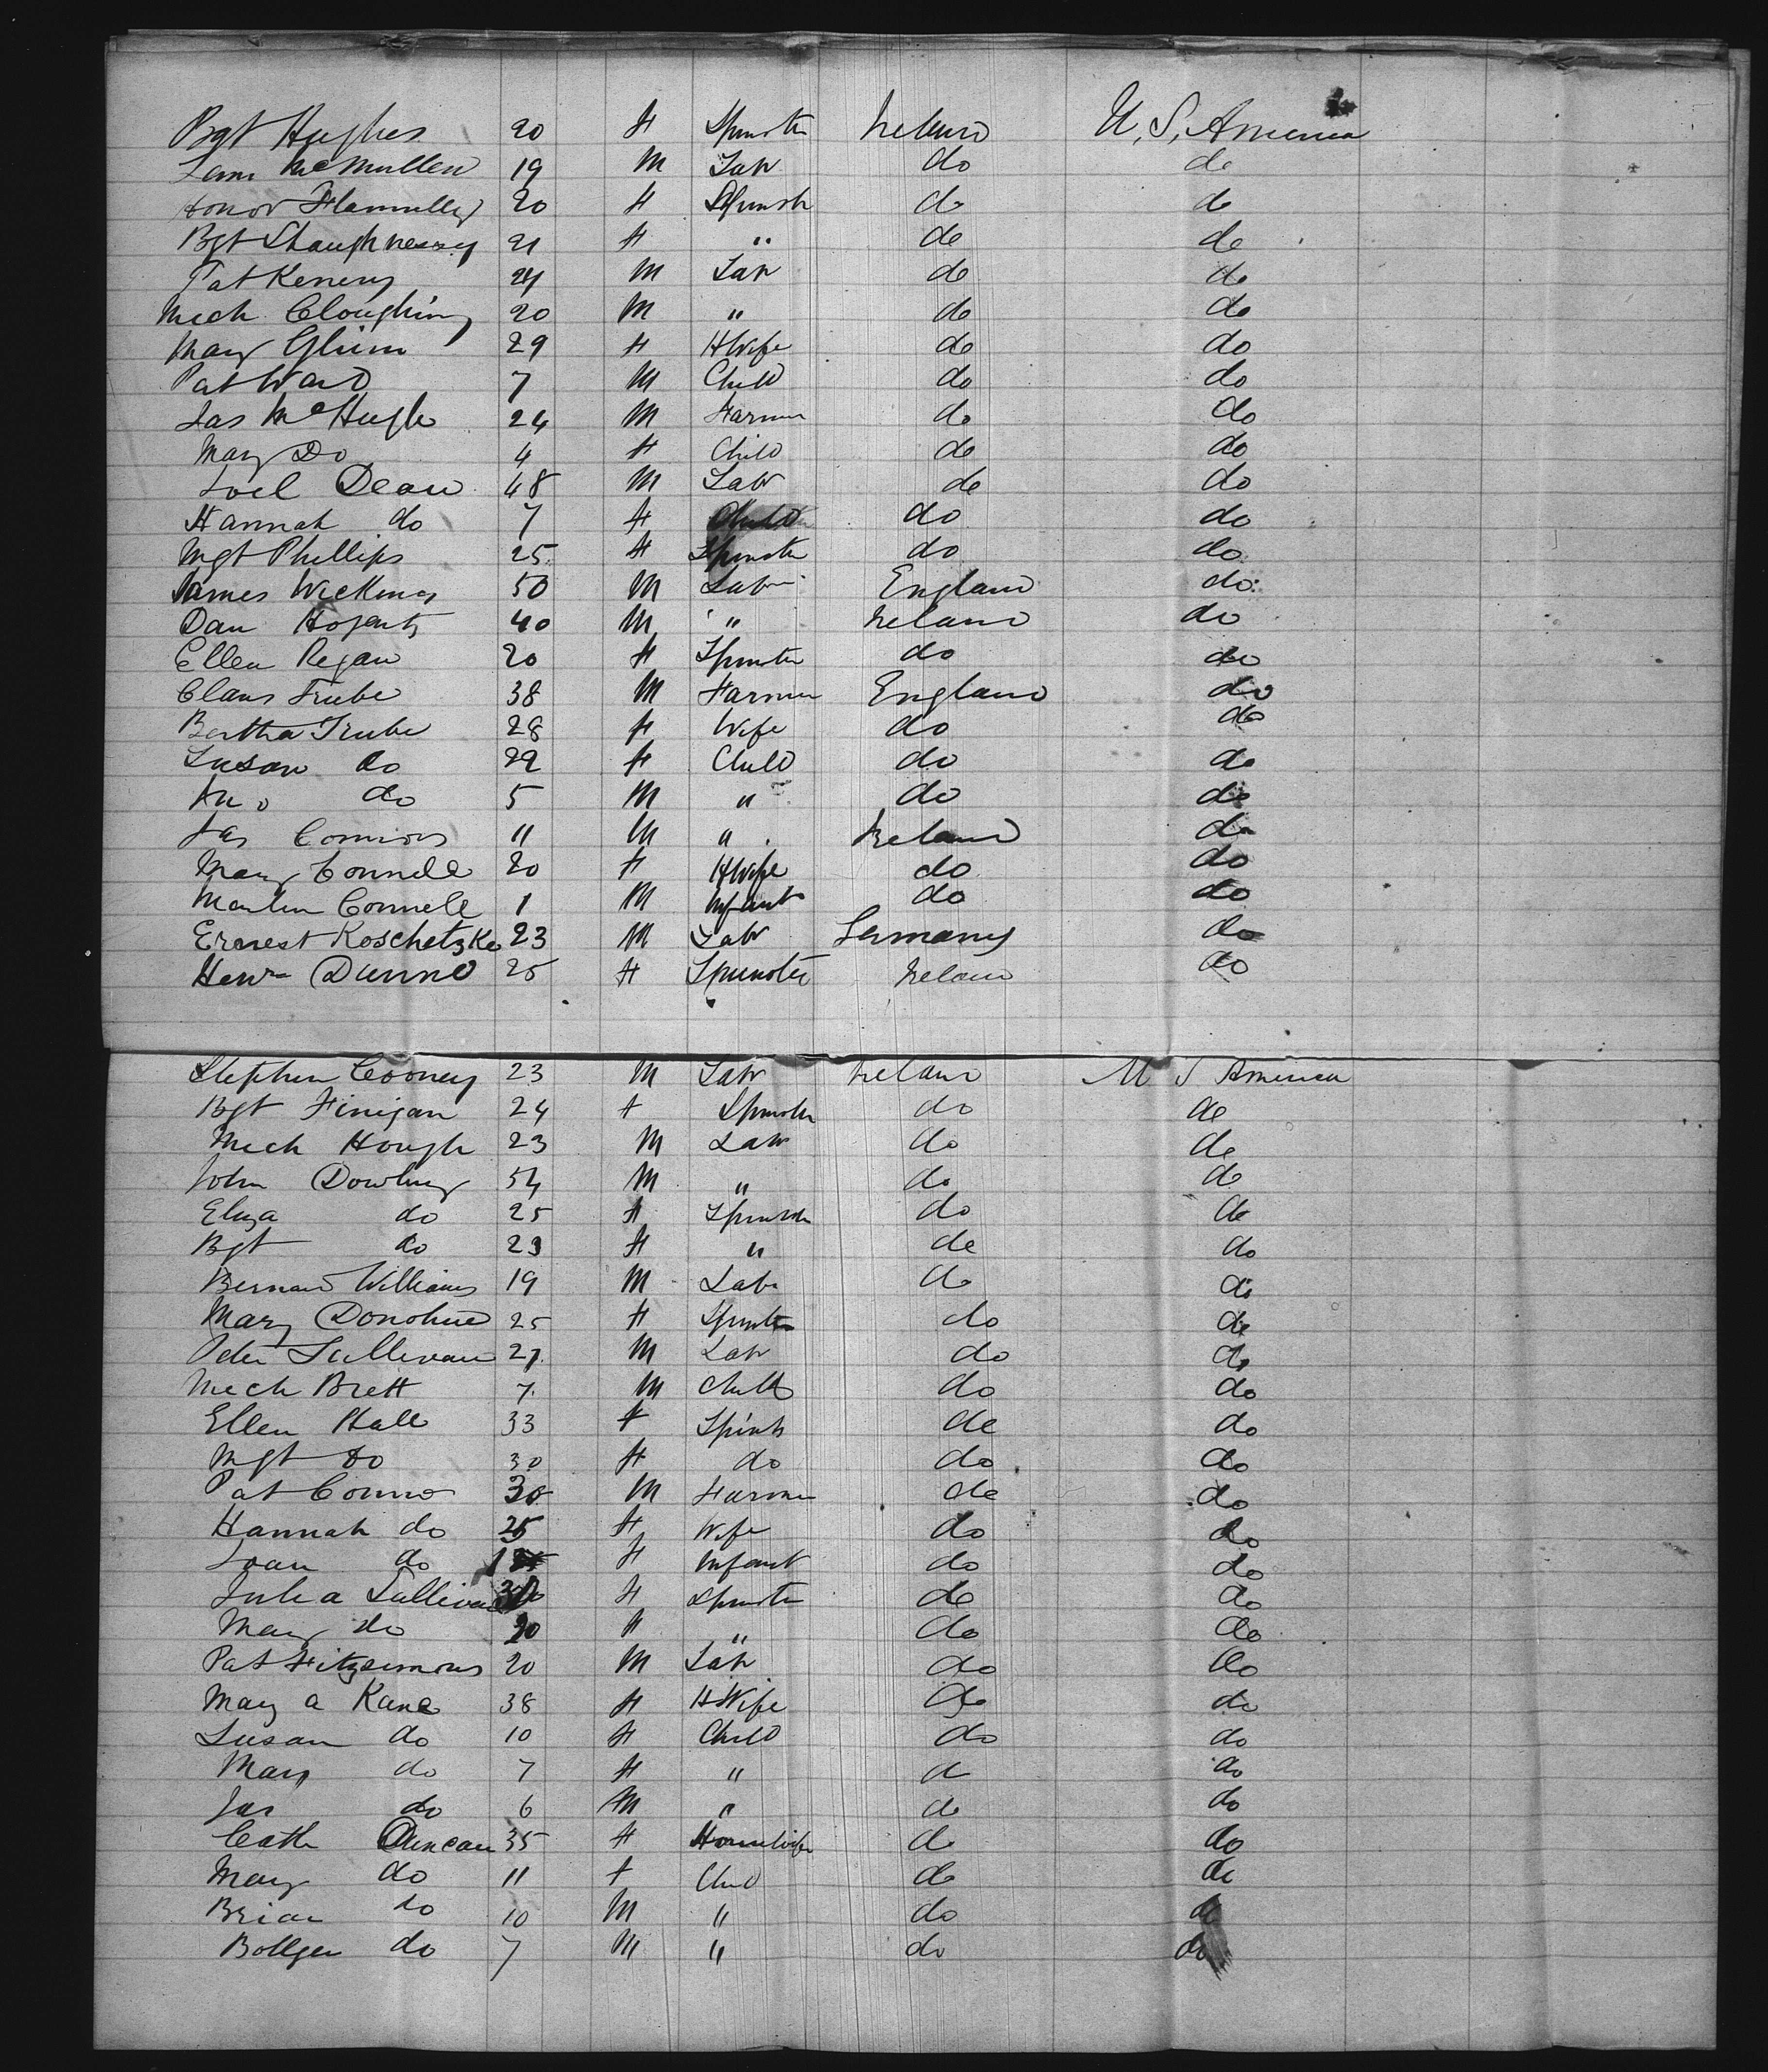 Bgt Hughes 20 F Spinster Ireland U.S. America
McMullen 19 M Lab do do
Honor Flannelly 20 F Spinster do do
Bgt Shaughnessy 21 F " do do
Pat Kenny 24 M Lab do do
Mich 20 M " do do
Mary Glinn 29 F HWife do do
Pat Ward 7 M Child do do
Jas McHugh 24 M Farmer do do
Mary Do 4 F Child do do
Joel Dean 48 M Lab do do
Hannah do 7 F Child do do
Mgt Phillips 25 F Spinster do do
James 50 M Labr England do
Dan Hogarty 40 M " Ireland do
Ellen Regan 20 F Spinster do do
Claus Trube 38 M Farmer England do
Bertha Trube 28 F Wife do do
Susan do F Child do do
Jno do 5 M " do do
Jas Connors 11 M " Ireland do
Mary Connell 20 F HWife do do
Martin Connell 1 M Infant do do
Ernest Koschetzke 23 M Lab Germany do
Dunne 25 F Spinster Ireland do
Stephen Cooney 23 M Lab Ireland U S America
Bgt Finigan 24 F Spinster do do
Mich Hough 23 M Lab do do
John Dowling 54 M " do do
Eliza do 25 F Spinster do do
Bgt do 23 F " do do
Bernard Williams 19 M Labr do do
Mary Donohue 25 F Spinster do do
Peter Sullivan 27 M Lab do do
Mich Brett 7 M Child do do
Ellen Hall 33 F Spinster do do
Mgt Do 30 F do do do
Pat Connor 30 M Farmer do do
Hannah do 25 F Wife do do
Joan do F Infant do do
Julia Sullivan 30 F Spinster do do
Mary do 20 F " do do
Pat Fitzsimons 20 M Lab do do
Mary A Kane 38 F HWife do do
Susan do 10 F Child do do
Mary do 7 F " do do
Jas do 6 M " do do
Cath Duncan 35 F Housewife do do
Mary do 11 F Child do do
Brian do 10 M " do do
do 7 M " do do